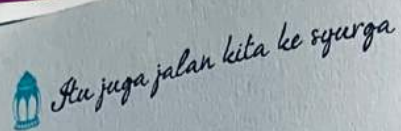 Itu juga jalan kita ke syurga